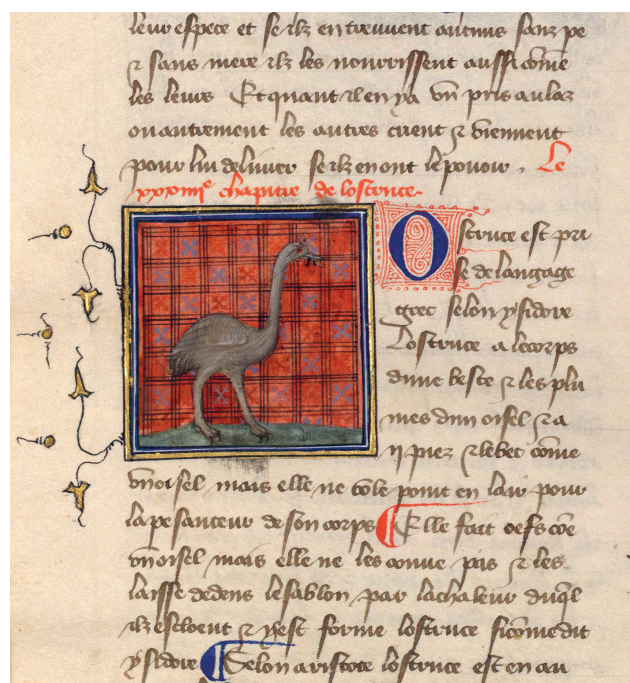 leur espece et se ilz en treuvent aucuns sanz pe
⁊ sans mere ilz les nourrissent aussi cōme
les leurs Et quant il en ya vn̄ pris au laz
ou autrement les autres crient ⁊ viennent
pour lui delivrer se ilz en ont le povoir. Le
chapitre de lostruce.
Ostruce est pri
se de langage
grec selon ysidore
Lostruce a le corps
dune beste ⁊ les plu
mes dun oisel ⁊ a
ij piez ⁊ le bec cōme
vn̄ oisel mais elle ne vole point en lair pour
la pesanteur de son corps Elle fait oefs cōe
vn̄ oisel mais elle ne les couve pas ⁊ les
laisse dedens le sablon par la chaleur duq̄l
ilz escloent ⁊ yest forme lostruce sicōme dit
ysidore Selon aristote lostruce est en au